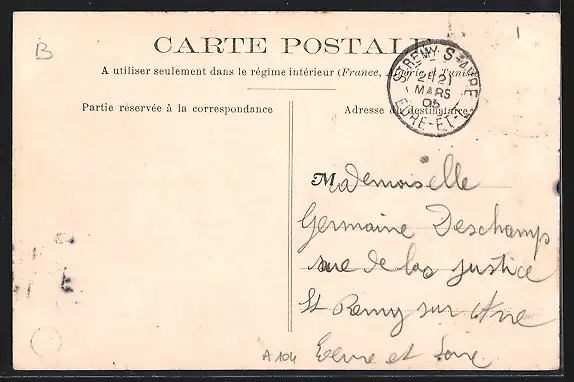 B
CARTE POSTALE
A utiliser seulement dans le régime intérieur (France, Algérie et Tunisie)
ST REMY S-AVRE
2-12
MARS
05
EURE-ET-L
Partie réservée à la correspondance
Adresse du destinataire
Mademoiselle
Germaine Deschamps
rue de la justice
St Remy sur Avre
Eure et Loire
A 104